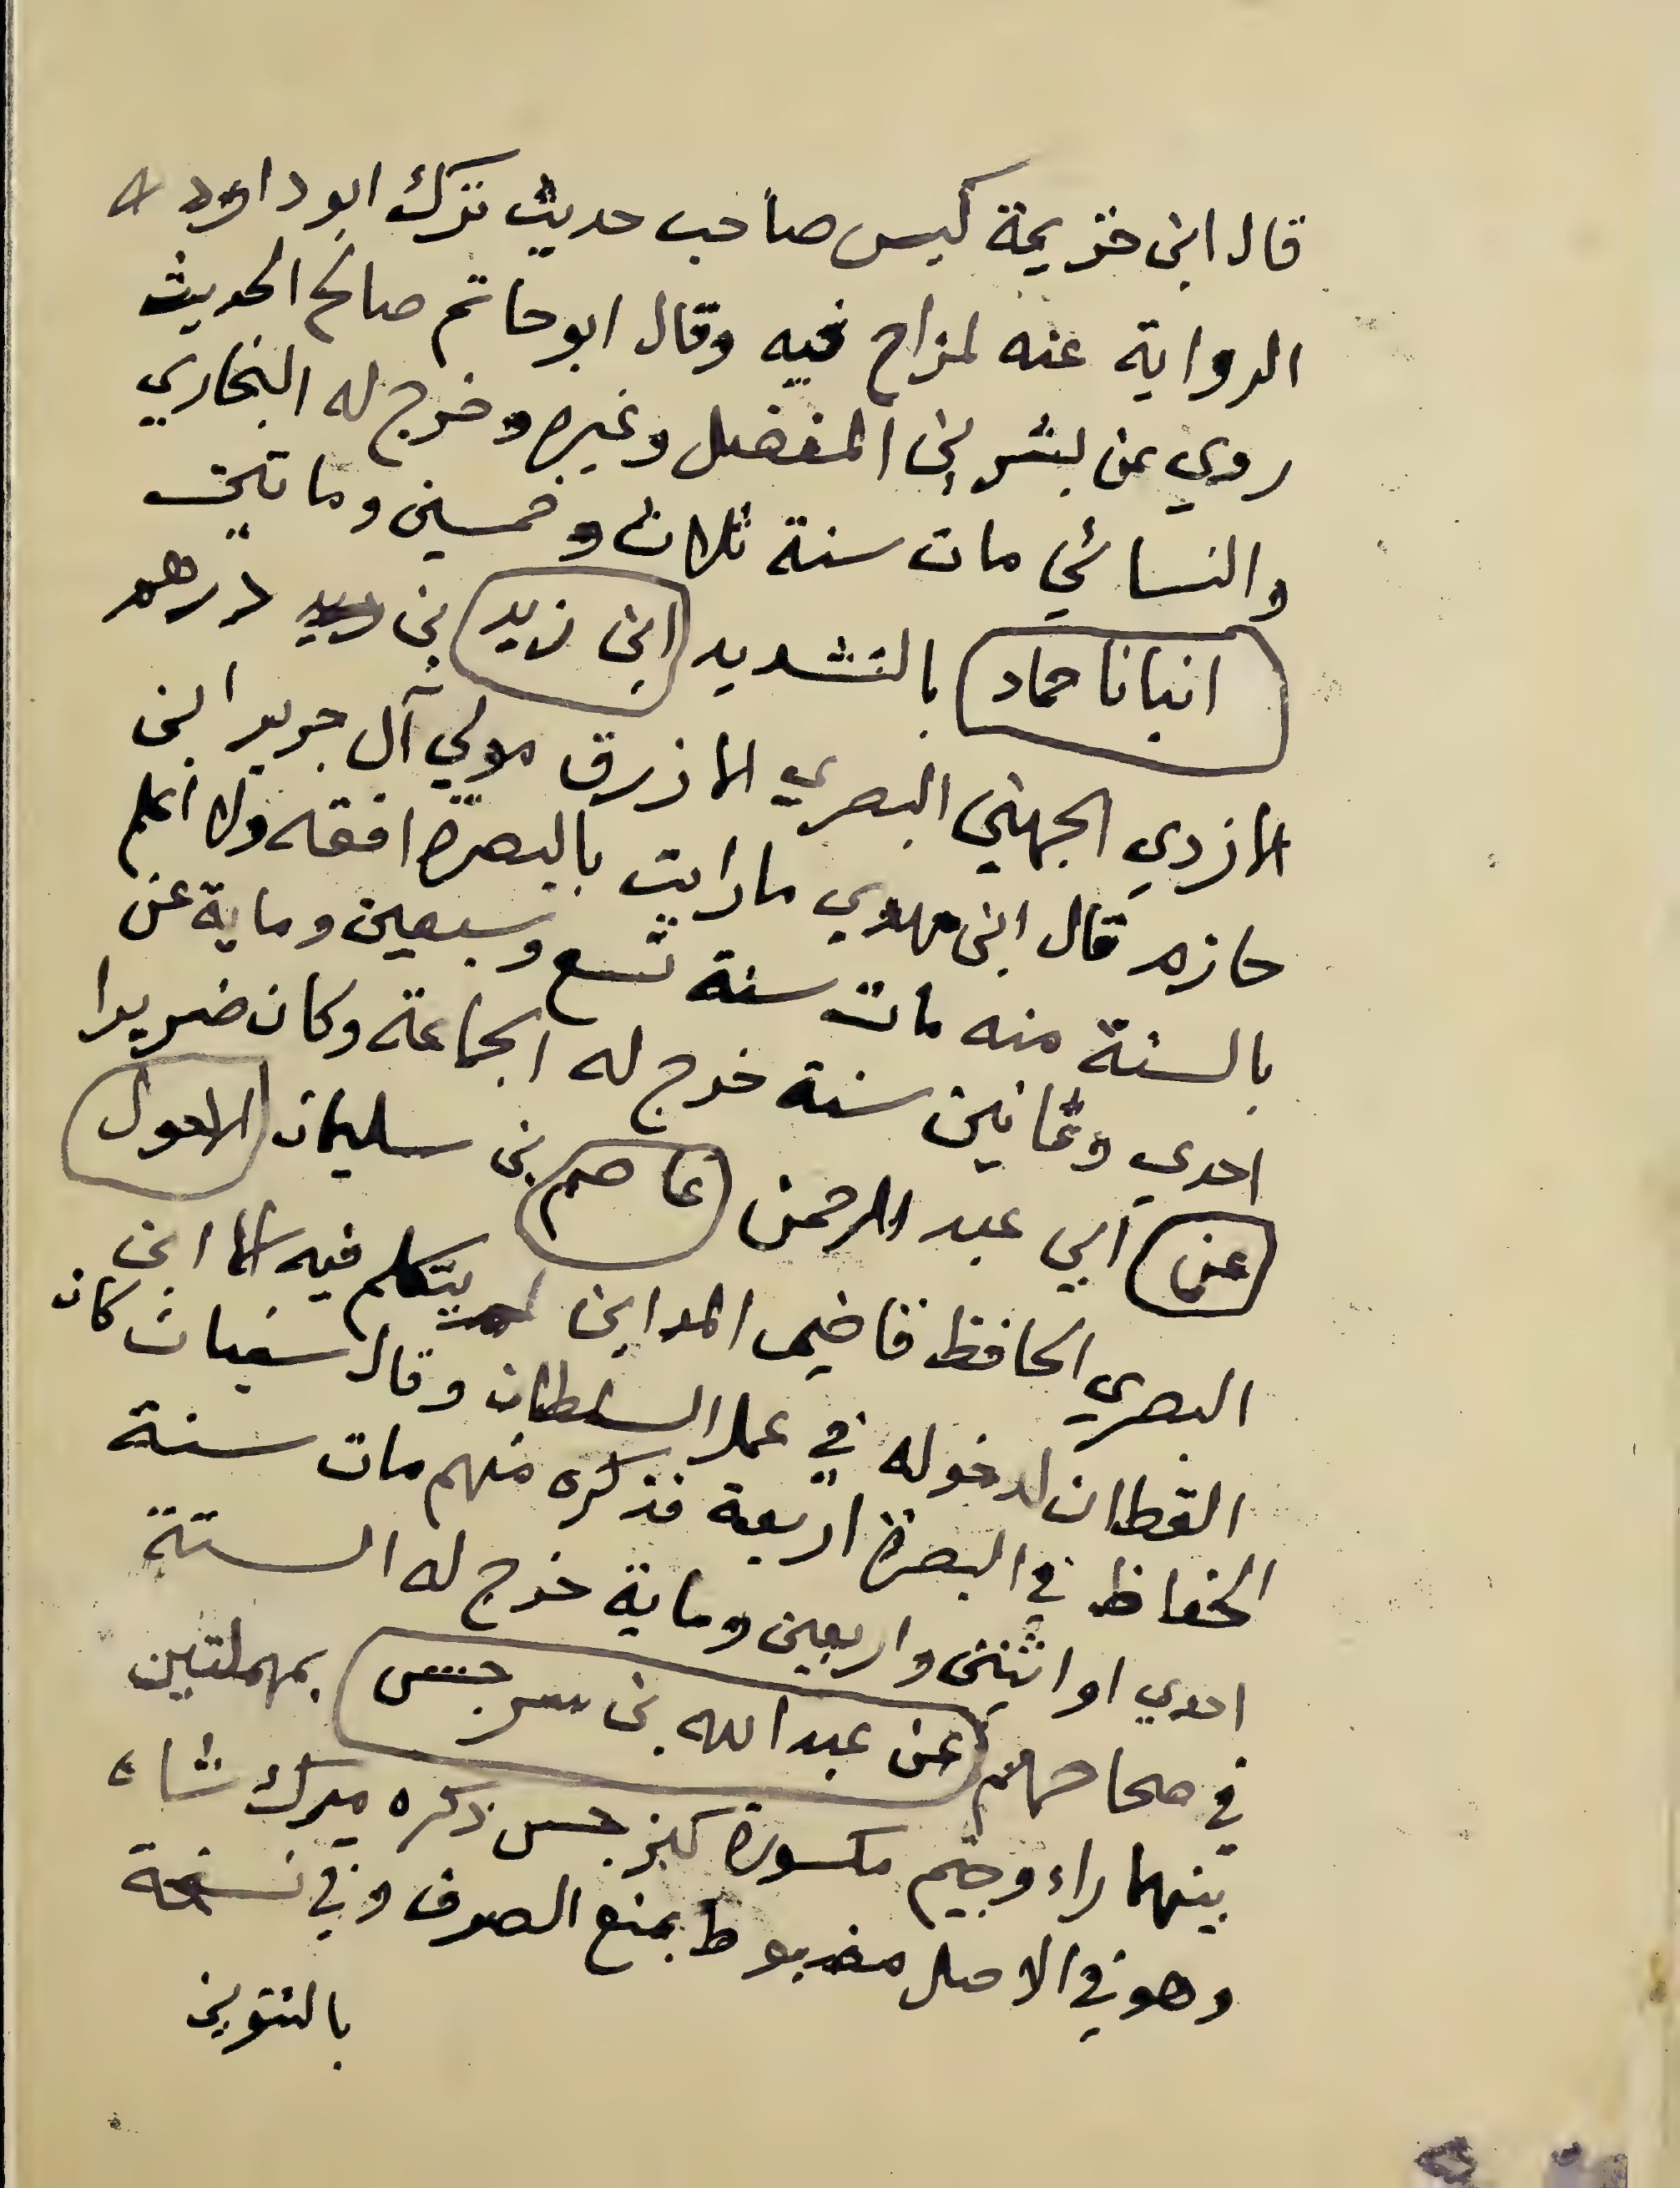 قال ابن خزيمة كيس صاحب حديث ترك ابو داود
الرواية عنه لمزاح فيه وقال ابو حاتم صالح الحديث
روي عن بشر بن المفضل وغيره وخرج له البخاري
والنسائي مات سنة ثلاث وخمسين وماتين
انبانا حماد بالتشديد ابن زيد بن درهم
الازدي الجهني البصري الازرق مولي آل جرير ابن
حازم قال ابن مهدي ما رايت بالبصرة افقه ولا اعلم
بالسنة منه مات سنة تسع وسبعين وماية عن
احدي وثمانين سنة خرج له الجماعة وكان ضريرا
عن ابي عبد الرحمن عاصم بن سليمان الاحول
البصري الحافظ قاضي المداين لم يتكلم فيه الا ابن
القطان لدخوله في عمل السلطان وقال سفيان كان
الحفاظ في البصرة اربعة فذكره منهم مات سنة
احدي او اثنين واربعين وماية خرج له الستة
في صحاحهم عن عبد الله بن سرجس بمهملتين
بينهما راء وجيم مكسورة كنرجس ذكره ميرك شاه
وهو في الاصل مضبوط بمنع الصرف وفي نسخة
بالتنوين